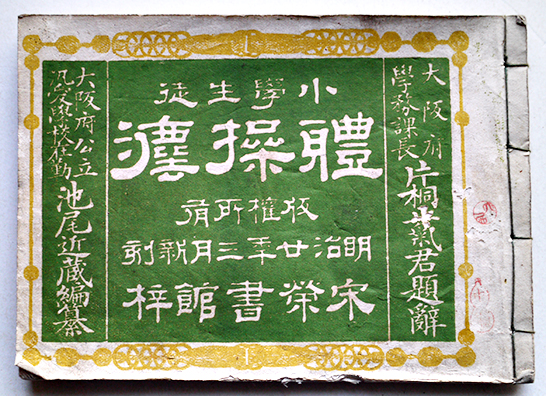 大阪府
學務課長
片桐正氣君題辭
小學生徒
體操灋
版權所有
明治廿年三月新刻
宋榮書館梓
大阪府公立
汎愛學校在勤
池尾近藏編纂